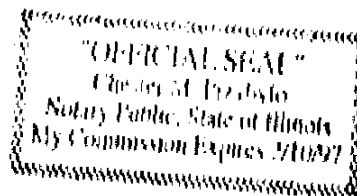 "OFFICIAL SEAL"
Chester M. Przybylo
Notary Public, State of Illinois
My Commission Expires 9/10/97